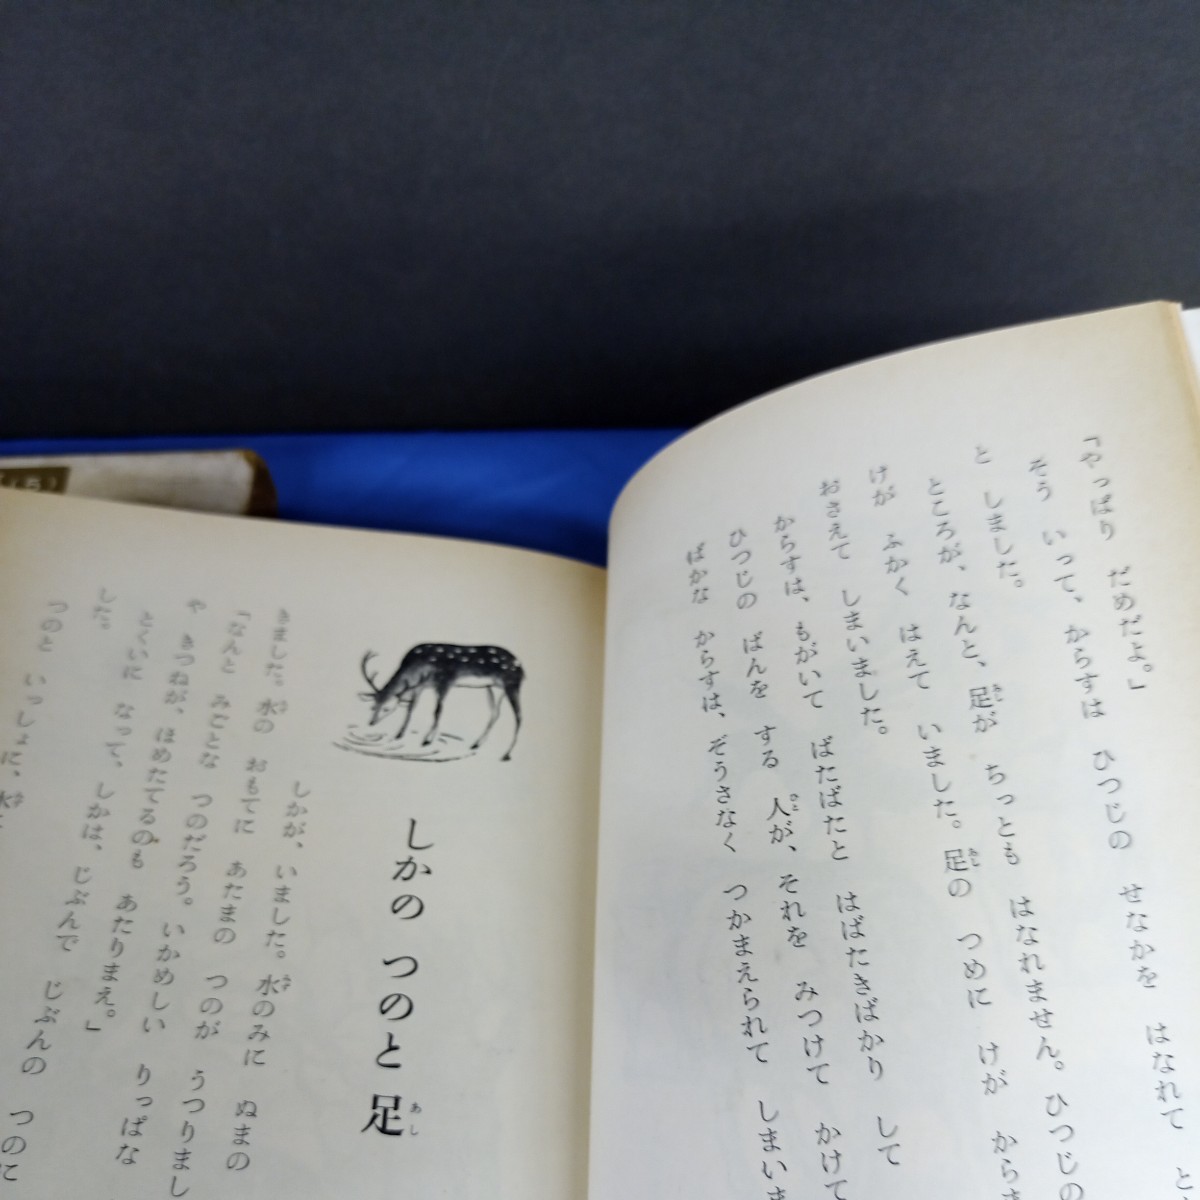 「やっぱり だめだよ。」
そう いって、からすは ひつじの せなかを はなれて と
と しました。
ところが、なんと、足が ちっとも はなれません。ひつじの
けが ふかく はえて いました。足の つめに けが からま
おさえて しまいました。
からすは、もがいて ばたばたと はばたきばかり して
ひつじの ばんを する 人が、それを みつけて かけて
ばかな からすは、ぞうさなく つかまえられて しまいま
しかの つのと 足
あし
しかが、いました。水のみに ぬまの
きました。水の おもてに あたまの つのが うつりまし
「なんと みごとな つのだろう。いかめしい りっぱな
や きつねが、ほめたてるのも あたりまえ。」
とくいに なって、しかは、じぶんで じぶんの つのに
した。
つのと いっしょに、水
(5)